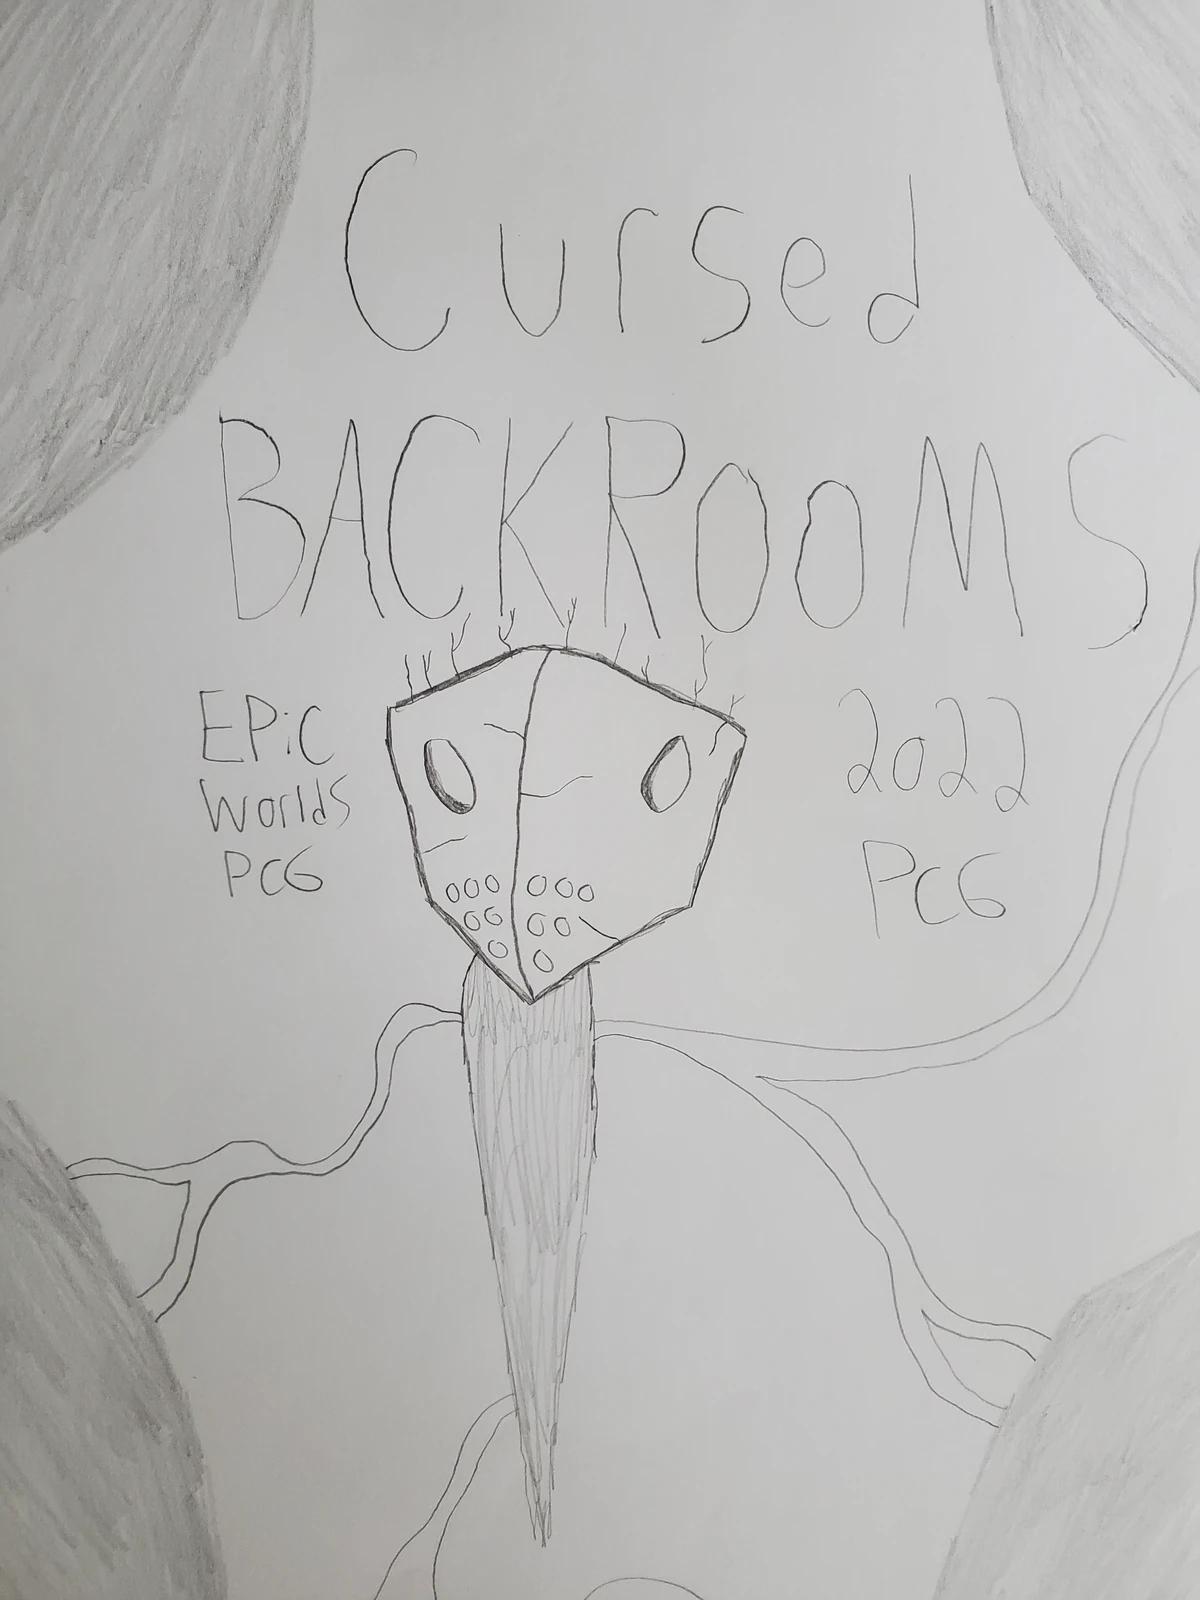 Cursed
BACKROOMS
EPiC
Worlds
PCG
2022
PCG